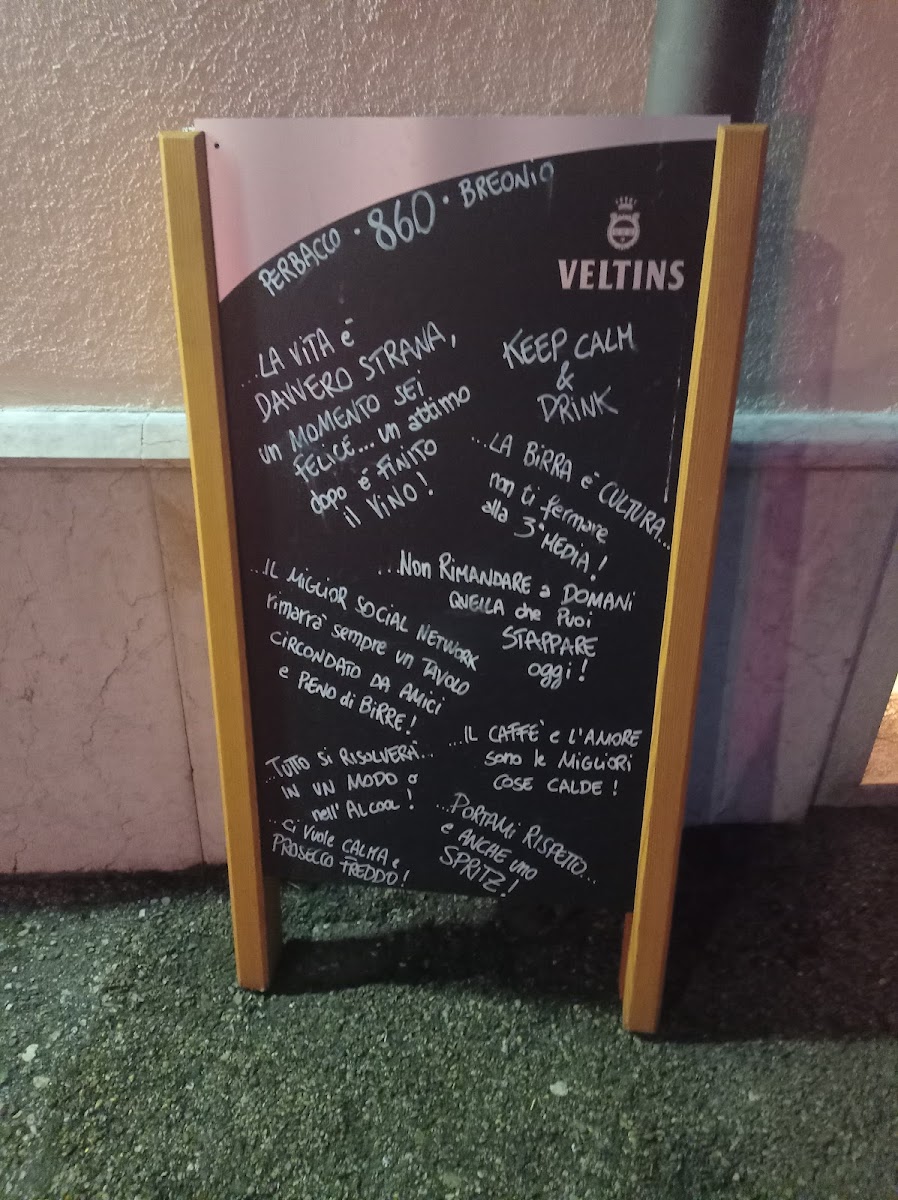 PERBACCO · 860 · BREONIO
VELTINS
...LA ViTA è
DAVVERO STRANA,
un MOMENTO SEi
FELICE... un attimo
dopo è FiNiTO
il ViNO!
KEEP CALM
&
DRINK
...LA BiRRA è CULTURA...
non ti fermare
alla 3ª MEDIA!
...Non RIMANDARE a DOMANi
QUELLA che Puoi
STAPPARE
oggi!
...IL MiGLIOR SOCIAL NETWORK
rimarrà sempre un TAVOLO
CIRCONDATO DA AMICI
e PIENO di BiRRE!
...IL CAFFÈ e l'AMORE
sono le MIGLIORI
COSE CALDE!
...TUTTO SI RISOLVERÀ...
IN UN MODO o
nell'ALcool!
...PORTAMI RISPETTO...
e ANCHE uno
SPRITZ!
...Ci Vuole CALMA e
PROSECCO FREDDO!